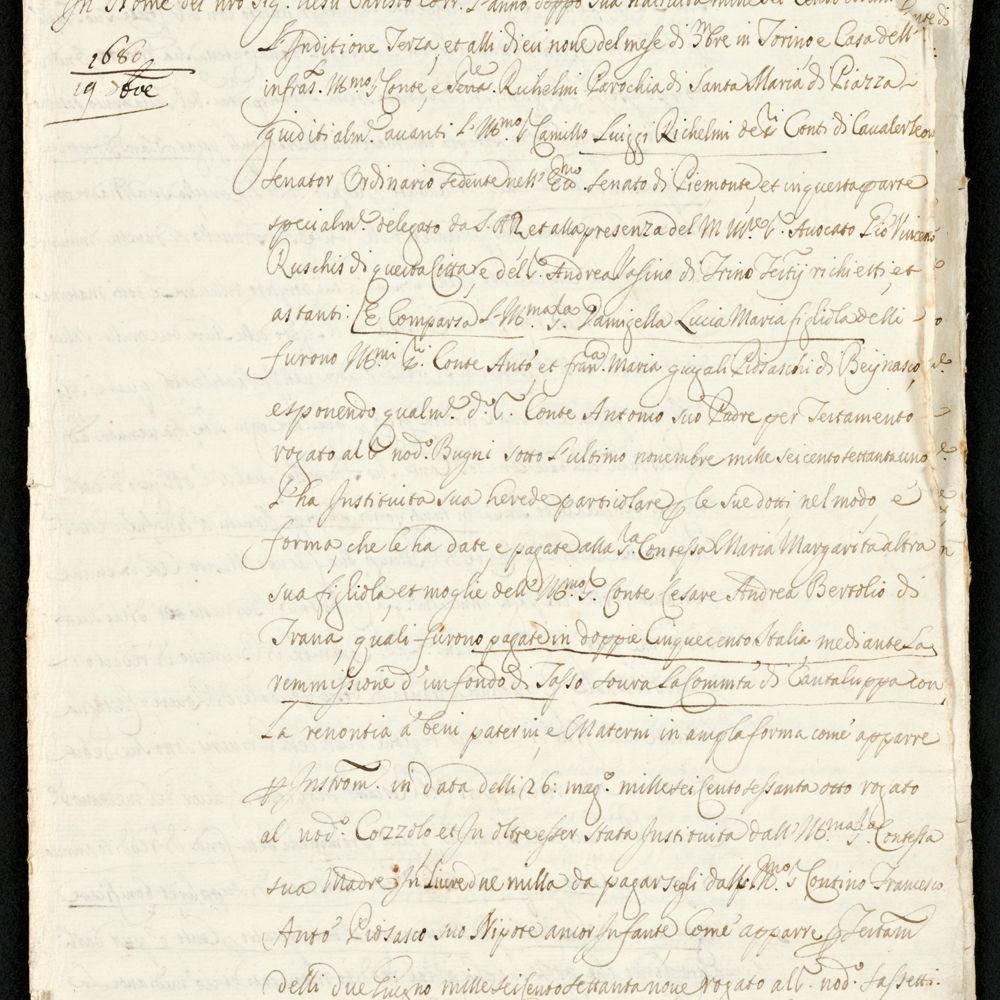 In Nome del nro Sig.r Iesu Christo Corr.e L'anno doppo sua
1680
19 Xbre
L'Inditione Terza, et alli dieci nove del mese di Xbre in Torino e Casa dell'
infras.to Ill.mo Sr Conte, e Sena.re Richelmi Parochia di Santa Maria di Piazza
giuditialm.te avanti l'Ill.mo Sr Camillo Luiggi Richelmi de Sri Conti di Cavalerleone
Senator Ordinario sedente nell' Ecc.mo Senato di Piemonte et in questa parte
specialm.te delegato da S. A R. et alla presenza del M. Ill.re Sr Avocato Pio Vincenzo
Ruschis di questa Città, e del Sr Andrea Vassino di Trino Testij richiesti, et
astanti: E Comparsa l'Ill.ma Sra Damigella Lucia Maria figliola delli
furono Ill.mi Sri Conte Anto, et Fran.ca Maria giugali Piosaschi di Beijnasco,
esponendo qualm.te do Sr Conte Antonio suo Padre per Testamento
rogato al Sr nodo Bugni sotto l'ultimo novembre mille seicento settanta uno
l'ha Instituita sua herede particolare p le sue dotti nel modo e
forma che le ha date e pagate alla Sra Contessa Maria Margarita altra
sua figliola, et moglie dell' Ill.mo Sr Conte Cesare Andrea Bertolio di
Trana, quali furono pagate in doppie Cinquecento Italia mediante la
remmissione d'un fondo di Tasso soura la Commta di Cantaluppa con
la renontia a beni paterni, e Materni in ampla forma come apparre
p Instrom.to in data delli 26: mago mille sei Cento sessanta otto rogato
al nodo Cozzolo et In oltre esser stata Instituita dall' Ill.ma Sra Contessa
sua Madre In livre due milla da pagarsegli dall' Ill.mo Sr Contino Francesco
Anto Piosasco suo Nipote ancor Infante Come apparre p Testam.to
delli due Giugno mille seisento settanta nove rogato all Sr nodo Sassetti.